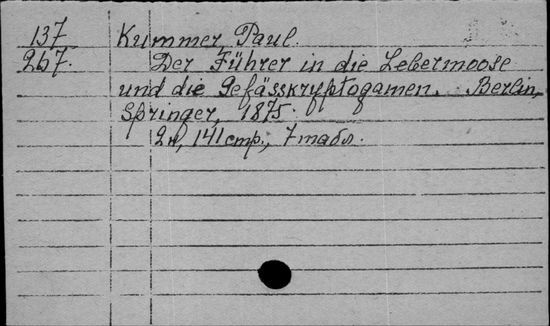 137 Kummer, Paul.
267. Der Führer in die Lebermoose
und die Gefässkryptogamen. Berlin,
Springer, 1875.
2н, 141 стр., 7 табл.